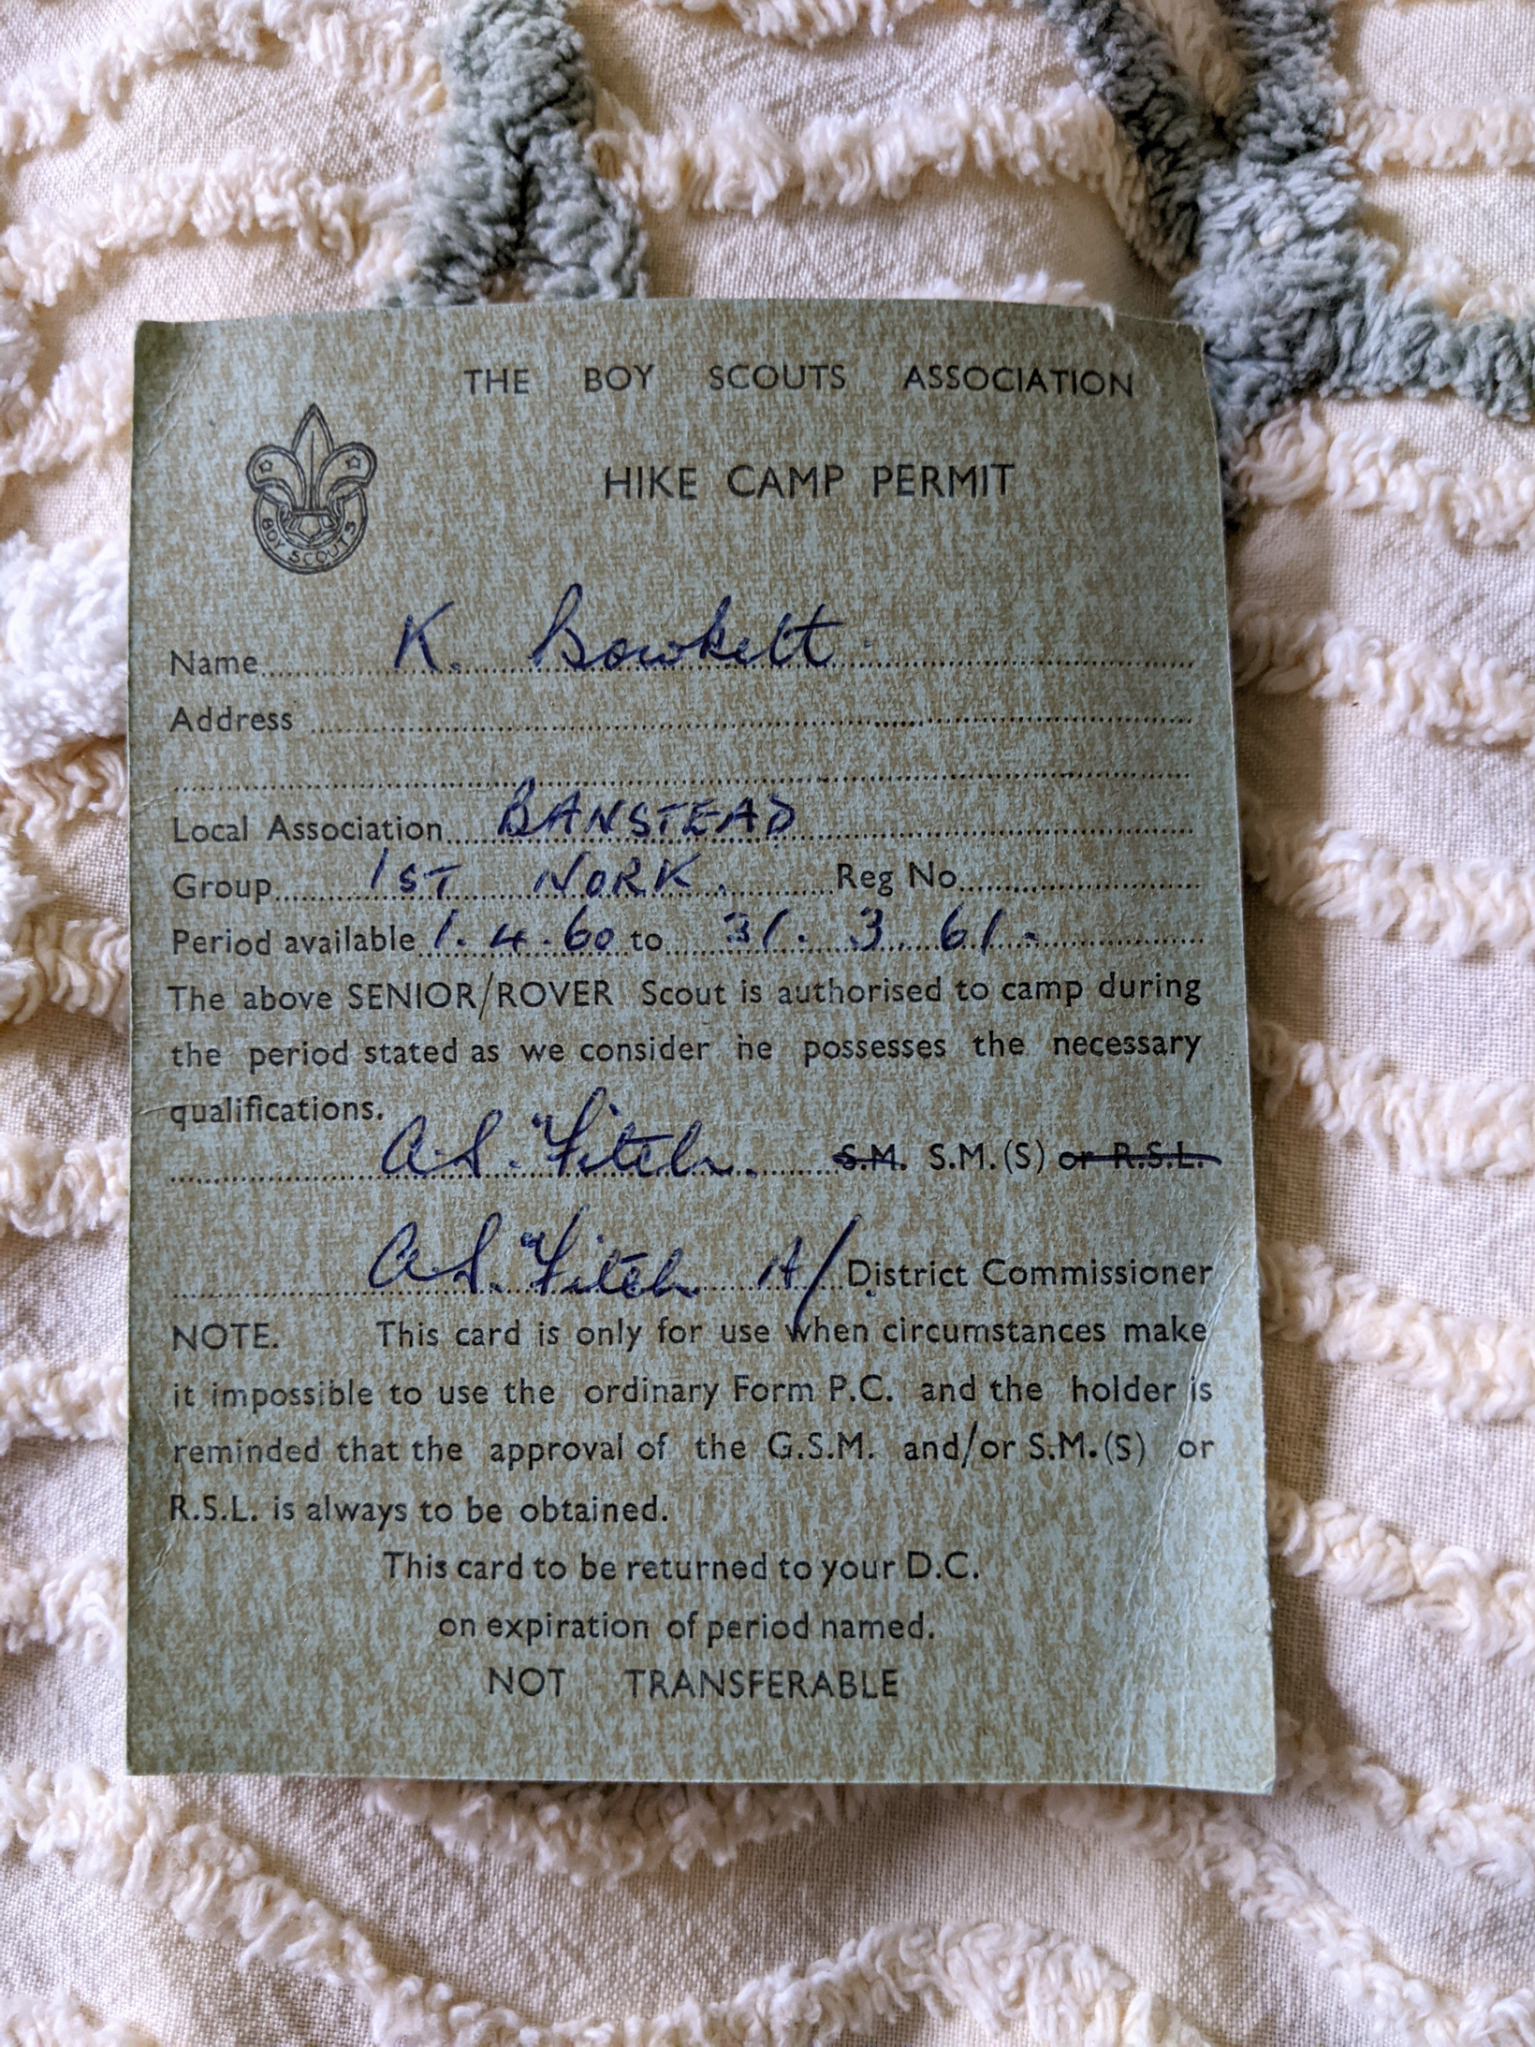 THE BOY SCOUTS ASSOCIATION
HIKE CAMP PERMIT
BOY SCOUTS
Name K. Bowkett
Address
Local Association BANSTEAD
Group 1ST NORK. Reg No
Period available 1.4.60 to 31.3.61.
The above SENIOR/ROVER Scout is authorised to camp during
the period stated as we consider he possesses the necessary
qualifications.
A.S. Fitch. S.M. S.M.(S) or R.S.L.
A.S. Fitch A/District Commissioner
NOTE. This card is only for use when circumstances make
it impossible to use the ordinary Form P.C. and the holder is
reminded that the approval of the G.S.M. and/or S.M.(S) or
R.S.L. is always to be obtained.
This card to be returned to your D.C.
on expiration of period named.
NOT TRANSFERABLE